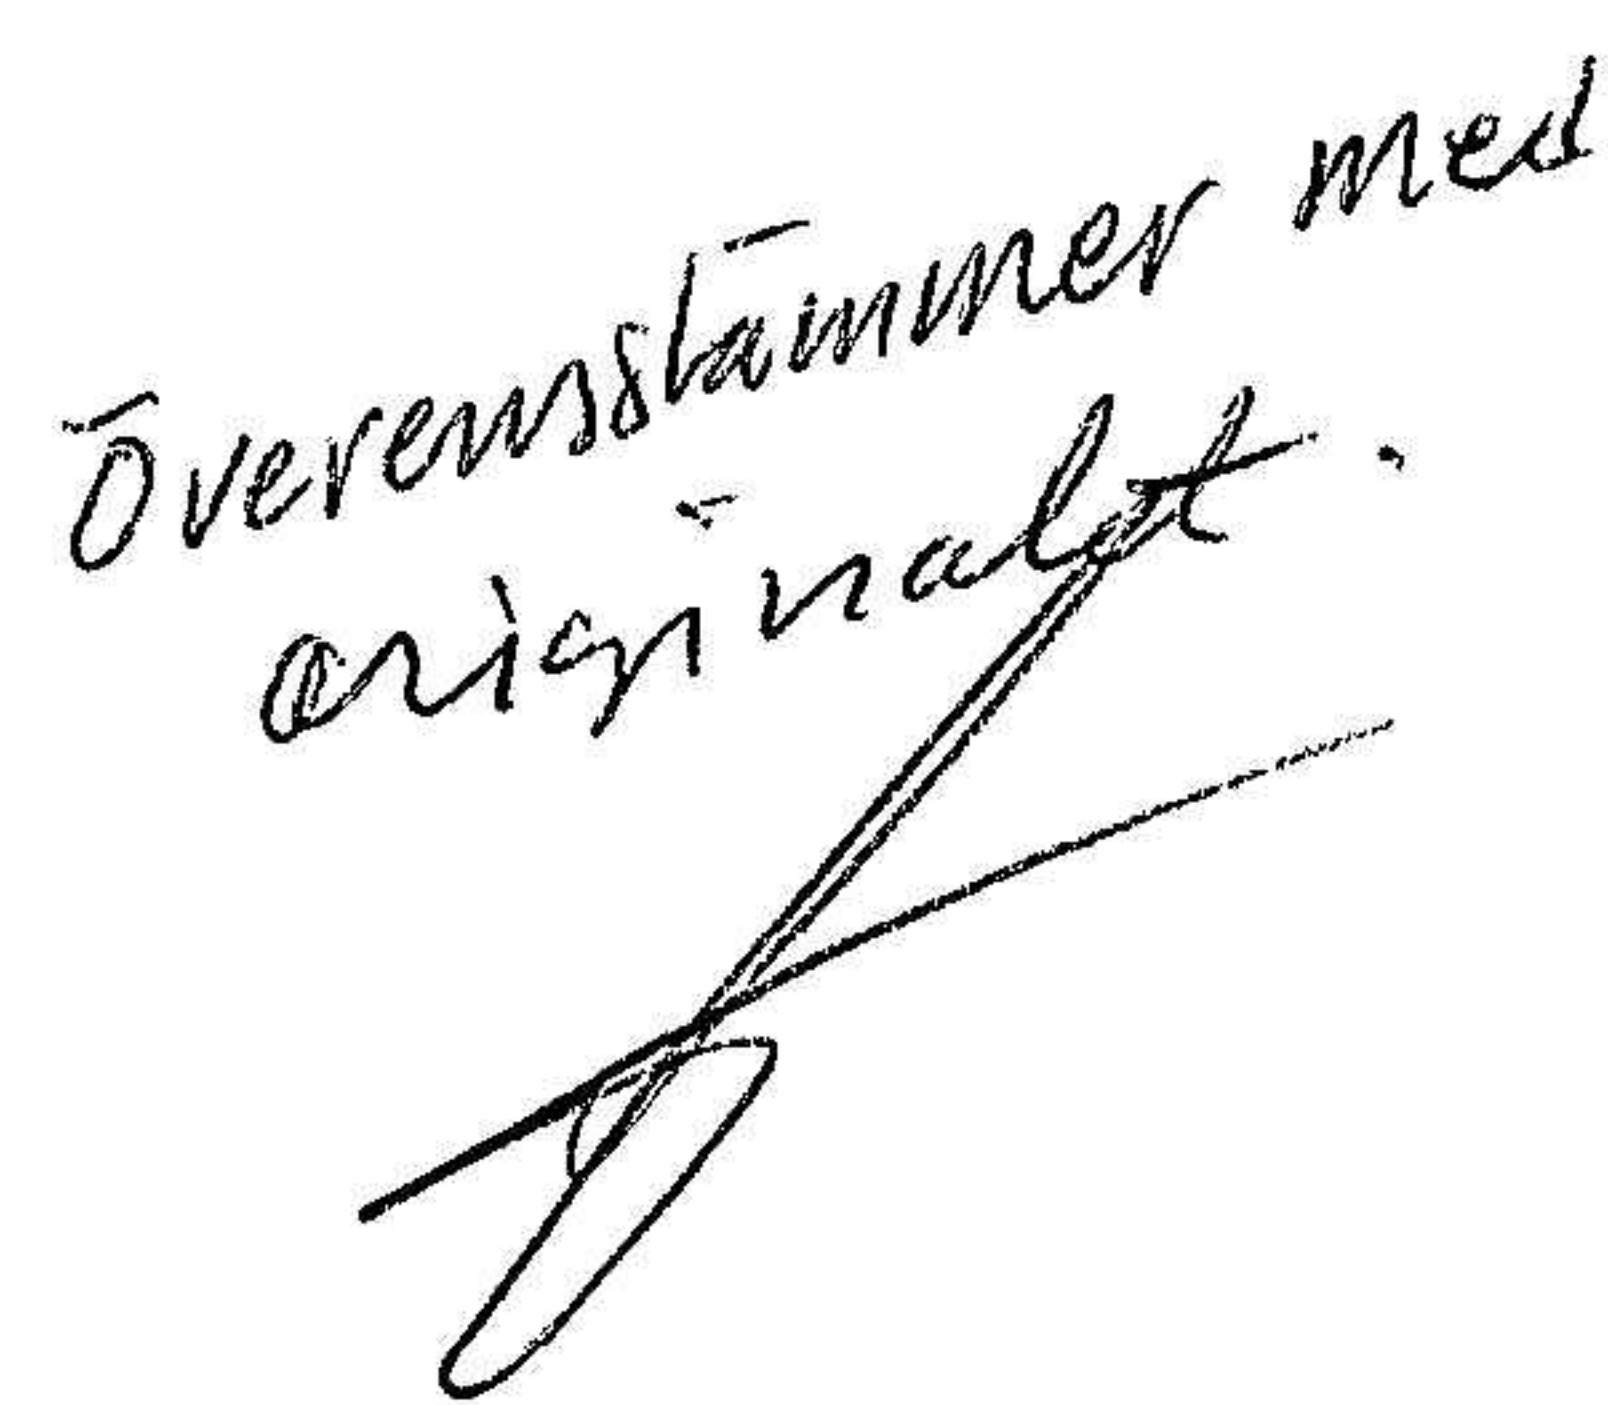 Överensstämmer med
originalet.